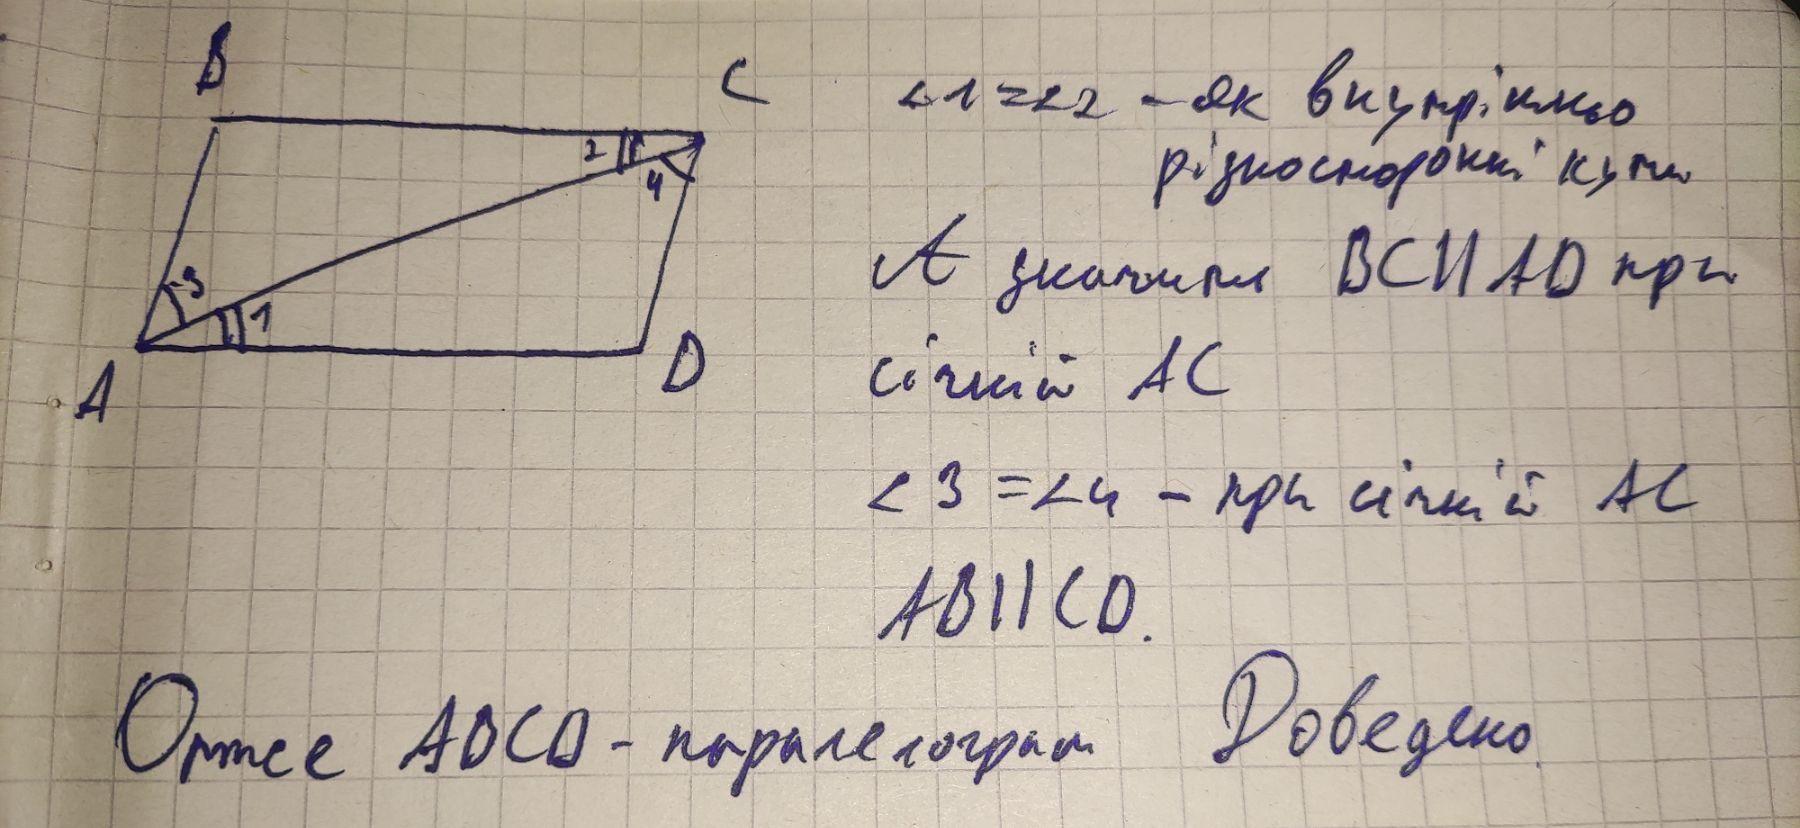 B
C
2
4
3
1
A
D
∠1=∠2 - як внутрішньо
різносторонні кути
А значить BC||AD при
січній AC
∠3=∠4 - при січній AC
AB||CD.
Отже ABCD - паралелограм Доведено.